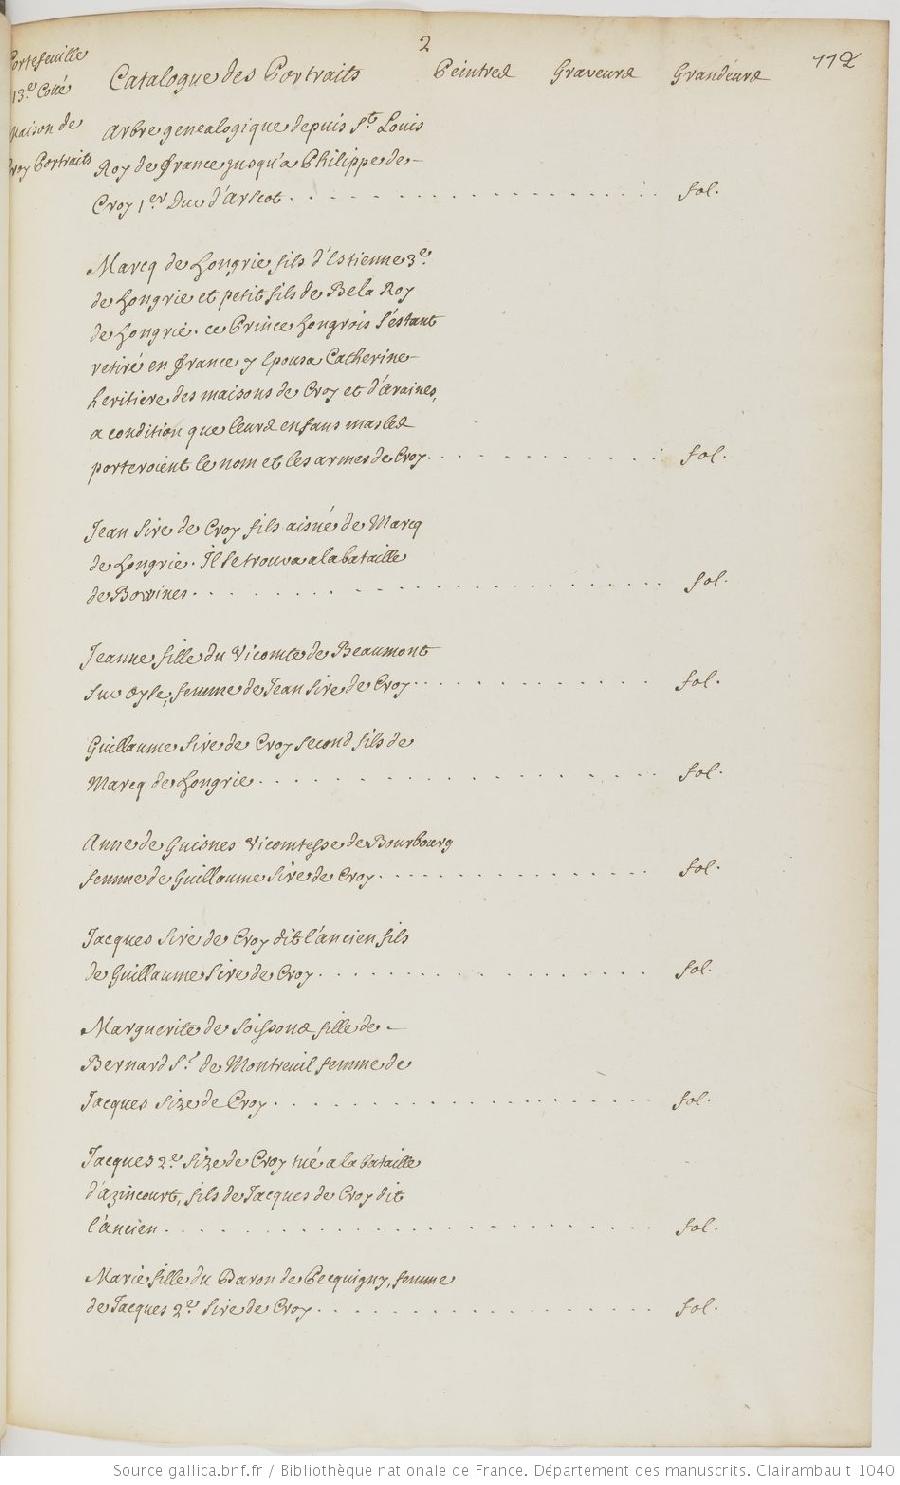 2
112
Portefeuille
13.e Cotté
Maison de
Croy Portraits
Catalogue des Portraits Peintres Graveurs Grandeurs
Arbre genealogique depuis St. Louis
Roy de france jusqu'a Philippe de
Croy 1.er Duc d'Arscot. fol.
Marcq de hongrie fils d'Estienne 3.e
de hongrie et petit fils de Bela Roy
de hongrie. ce Prince hongrois s'estant
retiré en france y Epousa Catherine
heritiere des maisons de Croy et d'Araines,
a condition que leurs enfans masles
porteroient le nom et les armes de Croy. fol.
Jean Sire de Croy fils aisné de Marcq
de hongrie. Il se trouva a la bataille
de Bovvines. fol.
Jeanne fille du Vicomte de Beaumont
sur oyse, femme de Jean Sire de Croy. fol.
Guillaume Sire de Croy second fils de
Marcq de hongrie. fol.
Anne de Guisnes Vicomtesse de Bourbourg
femme de Guillaume Sire de Croy. fol.
Jacques Sire de Croy dit l'ancien fils
de Guillaume Sire de Croy. fol.
Marguerite de Soissons fille de
Bernard S.r de Montreuil femme de
Jacques Size de Croy. fol.
Jacques 2.e Size de Croy tué a la bataille
d'azincourt, fils de Jacques de Croy dit
l'ancien. fol.
Marie fille du Baron de Pecquigny, femme
de Jacques 2.e Sire de Croy. fol.
Source gallica.bnf.fr / Bibliothèque nationale de France. Département des manuscrits. Clairambault 1040